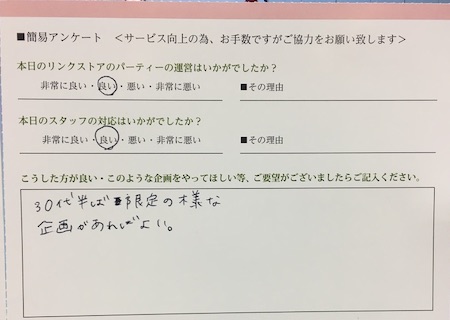 ■簡易アンケート <サービス向上の為、お手数ですがご協力をお願い致します>
本日のリンクストアのパーティーの運営はいかがでしたか?
非常に良い・良い・悪い・非常に悪い ■その理由
本日のスタッフの対応はいかがでしたか?
非常に良い・良い・悪い・非常に悪い ■その理由
こうした方が良い・このような企画をやってほしい等、ご要望がございましたらご記入ください。
30代半ば限定の様な
企画があればよい。